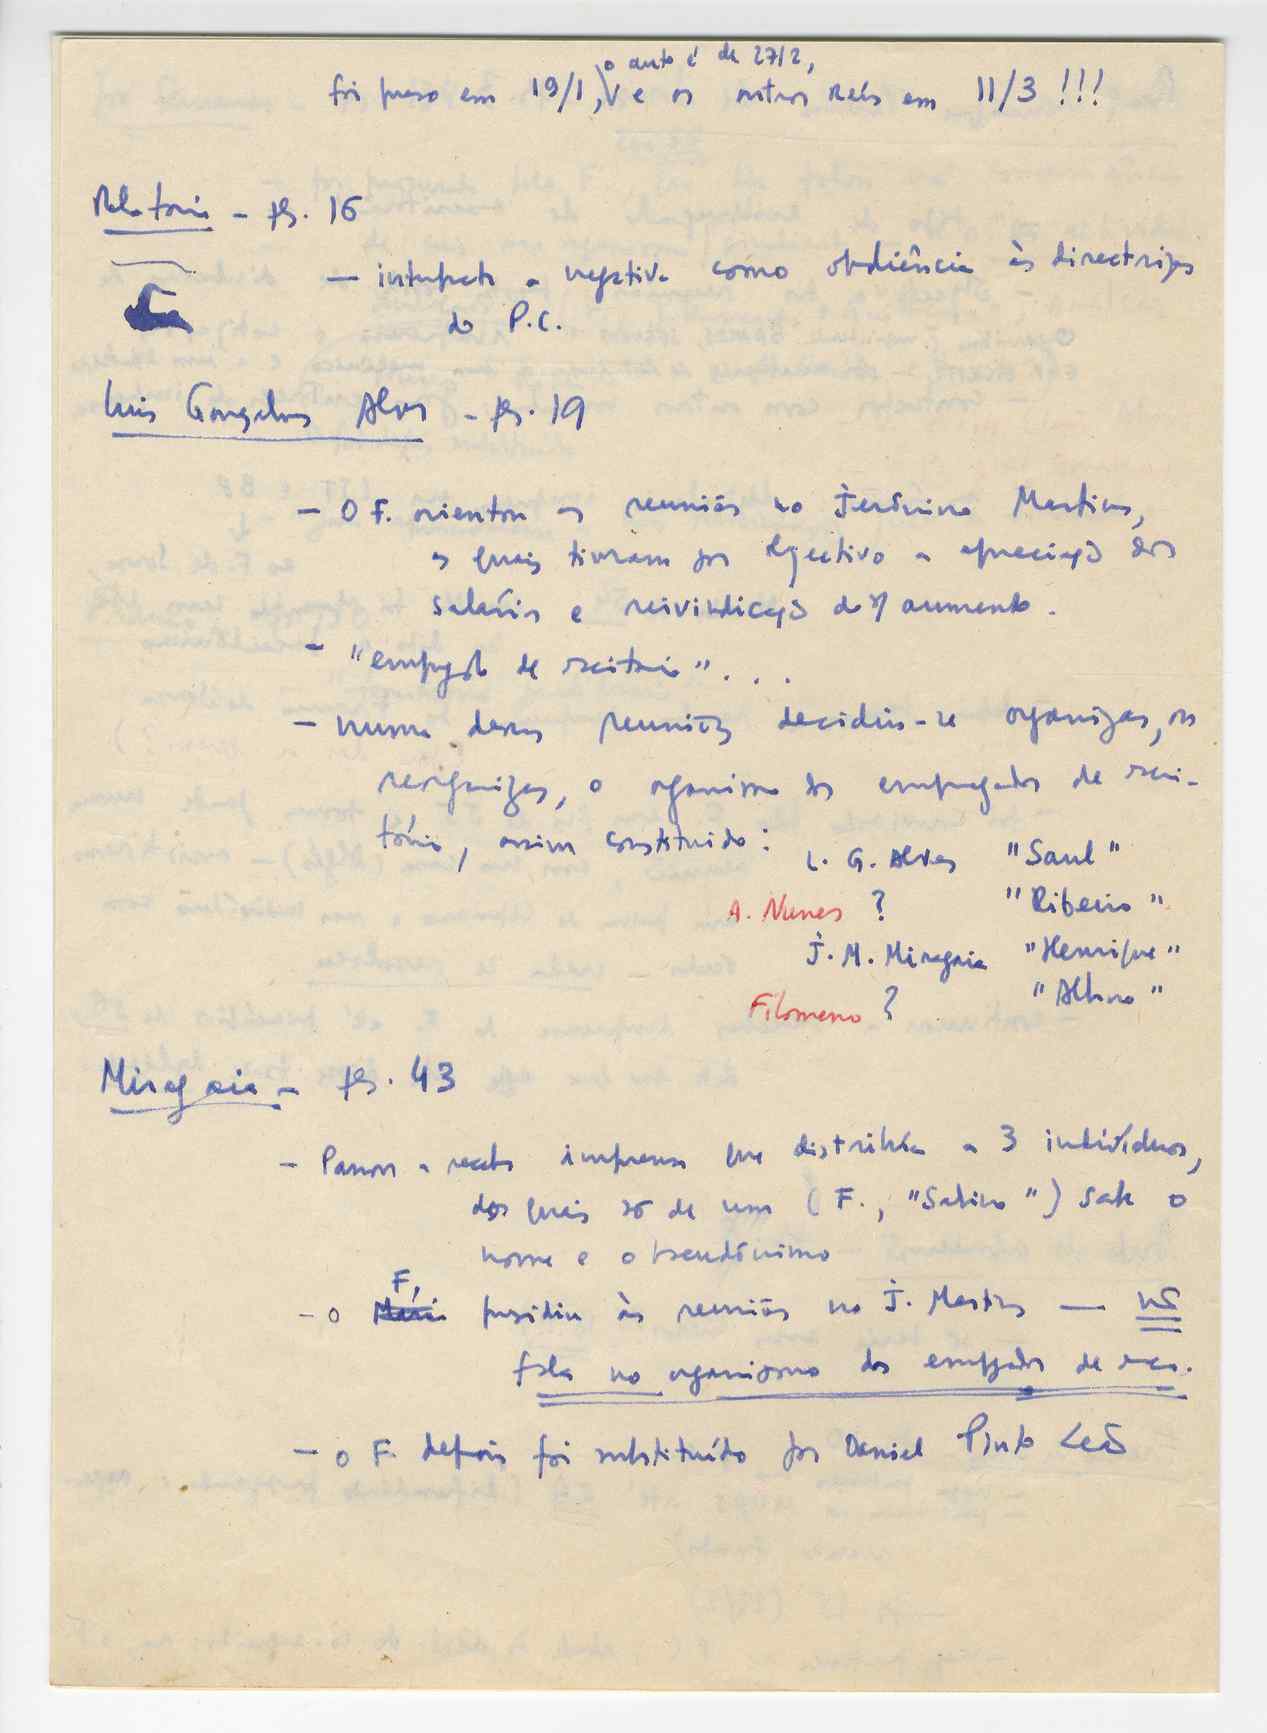 o auto é de 27/2,
foi preso em 19/1, e os outros réus em 11/3 !!!
Relatório - fls. 16
- interpreta a negativa como obediência às directrizes
do P.C.
Luis Gonçalves Alves - fls. 19
- O F. orientou as reuniões no Jerónimo Martins,
as quais tiveram por objectivo a apreciação dos
salários e reivindicação do s/ aumento.
- "empregado de escritório"...
- numa dessas reuniões decidiu-se organizar, ou
reorganizar, o organismo dos empregados de escri-
tório, assim constituído:
L. G. Alves "Saul"
A. Nunes ? "Ribeiro"
J. M. Miragaia "Henrique"
Filomeno ? "Albino"
Miragaia - fls. 43
- Passou a receber imprensa que distribuía a 3 indivíduos,
dos quais só de um (F., "Sabino") sabe o
nome e o pseudónimo
F,
- o presidiu às reuniões no J. Martins — não
fala no organismo dos empregados de esc.
- o F. depois foi substituído por Daniel Pinto Leão